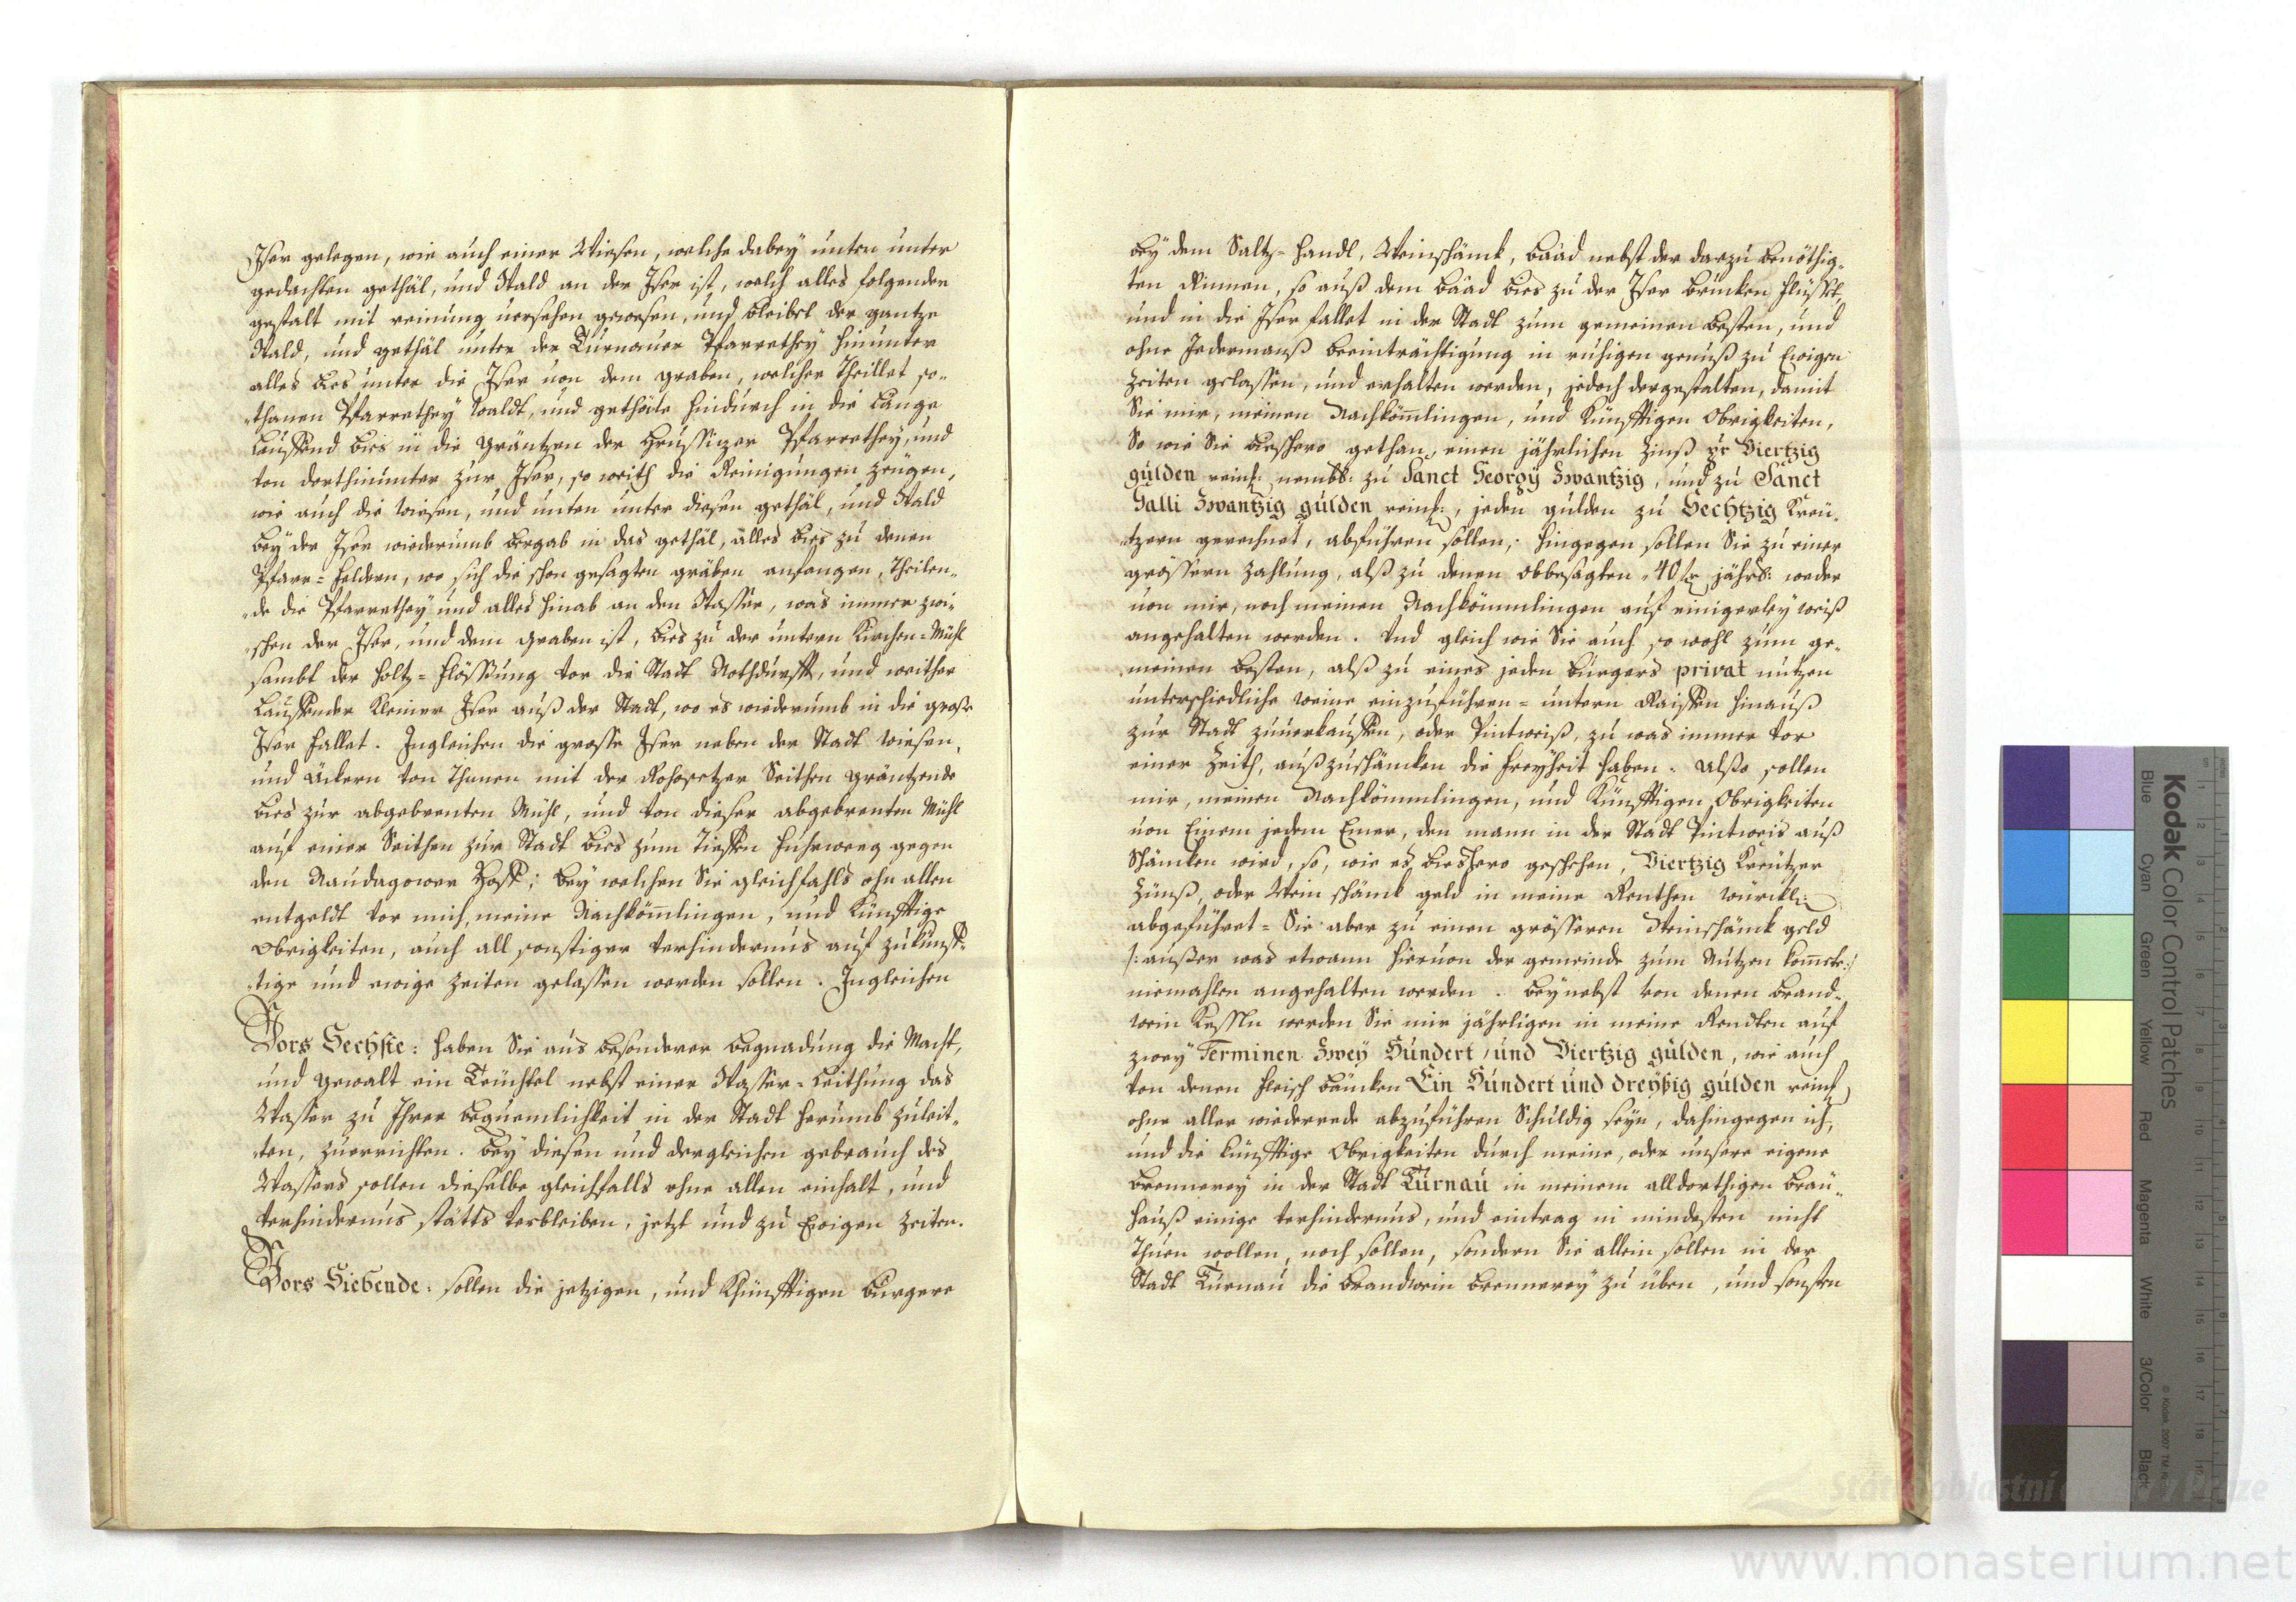 Iser gelegen, wie auch einer Wiesen, welche dabeÿ unten unter
gedachten gethäl, und Wald an der Iser ist, welch alles folgender
gestalt mit reinung versehen gewesen, und bleibet der gantze
Wald, und gethäl unter der Turnauer Pfarrethey hinunter
alles bies unter die Iser von dem graben, welcher theillet so-
thanen Pfarrethey Waldt, und gethäle hindurch in die Länge
Lauffend bies in die gräntzen der Pfarrethey, und
von dorthinunter zur Iser, so weith die Reinigungen zeugen,
wie auch die wiesen, und unten unter diesen gethäl, und Wald
beÿ der Iser wiederumb bergab in das gethäl, alles bies zu denen
Pfarr-feldern, wo sich die schon gesagten gräben anfangen, theilen-
de die Pfarrethey und alles hinab an den Wasser, was immer zwi-
schen der Iser, und dem graben ist, bies zu der untern Kirchen-Mühl
sambt der holtz-flössung vor die Stadt Nothdurfft, und weither
Lauffender kleiner Iser auß der Stadt, wo es wiederumb in die grosse
Iser fallet. Ingleichen die grosse Iser neben der Stadt wiesen,
und äckern von mit der Rohosetzer Seithen gräntzende
bies zur abgebrenten Mühl, und von dieser abgebrenten Mühl
auf einer Seithen zur Stadt bies zum tieffen fuhrweeg gegen
den Naudagower Hoff; beÿ welchen Sie gleichfahls ohn allen
entgeldt vor mich, meine Nachköm̄lingen, und künfftige
Obrigkeiten, auch all sonstiger verhindernus auf zukünff-
tige und ewige zeiten gelassen werden sollen. Ingleichen
Vors Sechste: haben Sie aus besonderer begnadung die Macht,
und gewalt ein nebst einer Wasser-Leithung das
Wasser zu Ihrer bequemlichkeit in der Stadt herumb zuleit-
ten, zuerrichten. beÿ diesen und dergleichen gebrauch des
Wassers sollen dieselbe gleichfalls ohne allen einhalt, und
verhindernus stätts verbleiben, jetzt und zu Ewigen zeiten.
Vors Siebende: sollen die jetzigen, und Khünfftigen burgere
beÿ dem Saltz-handl, Weinschänk, baad nebst der darzu benöthig-
ten Rinnen, so auß dem baad bies zu der Iser brucken flüsset,
und in die Iser fallet in der Stadt zum gemeinen besten, und
ohne Jedermanß beeinträchtigung in ruhigen genuß zu Ewigen
zeiten gelassen, und erhalten werden, jedoch dergestalten, damit
Sie mir, meinen Nachköm̄lingen, und künfftigen Obrigkeiten,
So wie Sie biesshero gethan, einen jährlichen Zinß pr Viertzig
gulden reinl: nembl: zu Sanct Georgÿ Zwantzig, und zu Sanct
Galli Zwantzig gulden reinl:, jeden gulden zu Sechtzig Kreü-
tzern gerechnet, abführen sollen, hingegen sollen Sie zu einer
grössern zahlung, alß zu denen obbesagten 40 fr jährl: weder
von mir, noch meinen Nachkömmlingen auf einigerleÿ weiß
angehalten werden. Und gleich wie Sie auch so wohl zum ge-
meinen besten, alß zu eines jeden burgers privat nutzen
unterschiedliche weine einzuführen- untern Raiffen hinauß
zur Stadt zuverkauffen, oder Pintweiß, zu was immer vor
einer Zeith, außzuschäncken die freÿheit haben. alßo sollen
mir, meinen Nachkömmlingen, und künfftigen Obrigkeiten
von Einem jedem Emer, den mann in der Stadt Pintweis auß
Schäncken wird, so, wie es bieshero geschehen, Viertzig Kreützer
Zünß, oder Wein schänk geld in meine Renthen würckl:
abgeführet- Sie aber zu einen grösseren Weinschänk geld
/: ausser was etwann hiervon der gemeinde zum Nutzen kom̄ete :/
niemahlen angehalten werden. beÿnebst von denen brand-
wein kessln werden Sie mir jährligen in meine Rendten auf
zweÿ Terminen Zweÿ Hundert, und Viertzig gulden, wie auch
von denen fleisch bäncken Ein Hundert und dreÿßig gulden reinl
ohne aller wiederrede abzuführen Schuldig seyn, dahingegen ich,
und die künfftige Obrigkeiten durch meine, oder unsere eigene
brennereÿ in der Stadt Turnau in meinem alldorthigen bräu-
hauß einige verhindernus, und eintrag in mindesten nicht
thuen wollen, noch sollen, sondern Sie allein sollen in der
Stadt Turnau die brandwein brennereÿ zu üben, und sonsten
Kodak Color Control Patches
Blue Cyan Green Yellow Red Magenta White 3/Color Black
© Kodak, 2007 TM: Kodak
Státní oblastní archiv v Praze
www.monasterium.net